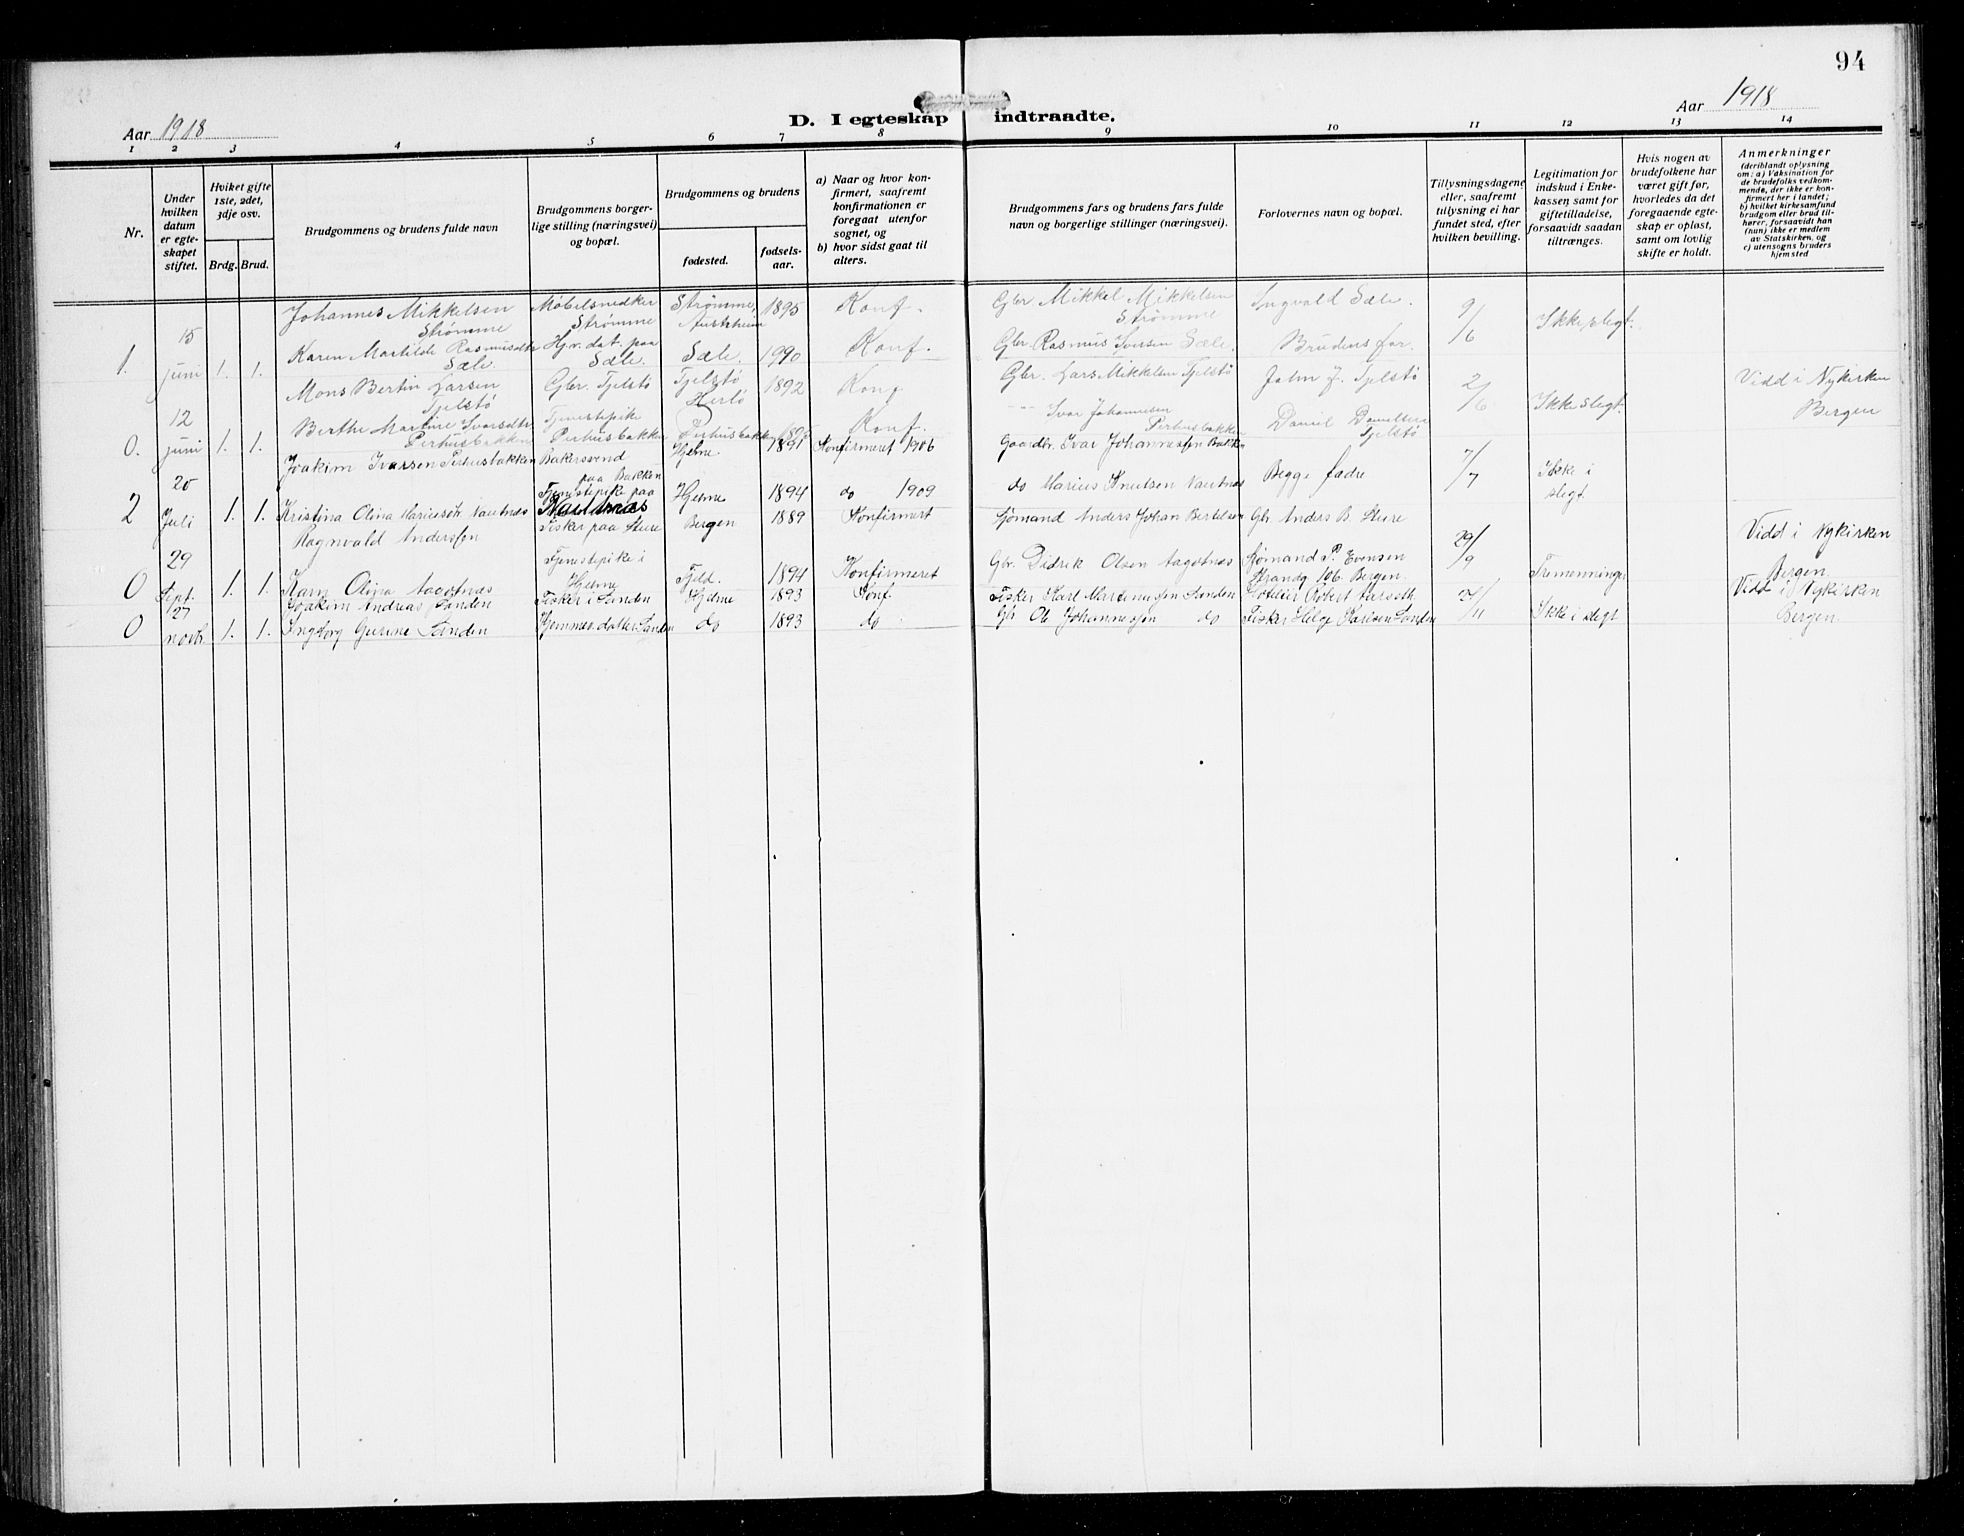 94
Aar 1918
D. I egteskap indtraadte.
Aar 1918
1 2 3 4 5 6 7 8 9 10 11 12 13 14
Nr.
Under hvilken datum er egteskapet stiftet.
Hviket gifte 1ste, 2det, 3dje osv.
Brdg. Brud.
Brudgommens og brudens fulde navn
Brudgommens borgerlige stilling (næringsvei) og bopæl.
Brudgommens og brudens
fødested.
fødselsaar.
a) Naar og hvor konfirmert, saafremt konfirmationen er foregaat utenfor sognet, og
b) hvor sidst gaat til alters.
Brudgommens fars og brudens fars fulde navn og borgerlige stillinger (næringsvei).
Forlovernes navn og bopæl.
Tillysningsdagene eller, saafremt tillysning ei har fundet sted, efter hvilken bevilling.
Legitimation for indskud i Enkekassen samt for giftetilladelse, forsaavidt saadan tiltrænges.
Hvis nogen av brudefolkene har været gift før, hvorledes da det foregaaende egteskap er opløst, samt om lovlig skifte er holdt.
Anmerkninger (deriblandt oplysning om: a) Vaksination for de brudefolks vedkommende, der ikke er konfirmert her i landet; b) hvilket kirkesamfund brudgom eller brud tilhører, forsaavidt han (hun) ikke er medlem av Statskirken, og c) utensogns bruders hjemsted
1. 15 juni 1. 1.
Johannes Mikkelsen Strømme
Møbelsnedker Strømme
Strømme, Austrheim 1895 Konf.
Gbr Mikkel Mikkelsen Strømme
Ingvald Sæle.
9/6 Ikke slegt.
Karen Martilde Rasmusdtr Sæle.
Hj.v. dat. paa Sæle.
Sæle. 1990 Konf.
Gbr Rasmus Iversen Sæle.
Brudens far.
0. 12 juni 1. 1.
Mons Bertin Larsen Tjelstø
Gbr. Tjelstø
Tjelstø Herlø 1892 Konf
Gbr. Lars Mikkelsen Tjelstø
John J. Tjelstø
2/6 Ikke slegt.
Vidd i Nykirken Bergen
Berthe Martine Ivarsdtr Perhusbakken
Tjenestepike Perhusbakken
Perhusbakken Konf.
Ivar Johannesen Perhusbakken
Daniel Danielsen Tjelstø
2 20 Juli 1. 1.
Joakim Ivarsen Perhusbakken
Bakersvend paa Bakken
Hjelme 1891 Konfirmeret 1906
Gaardbr. Ivar Johannessen Bakken
Begge fædre
7/7 Ikke i slegt.
Kristina Olina Mariusdtr Nautnæs
Tjenestepike paa Nautnæs
Hjelme 1894 do 1909
do Marius Knutsen Nautnæs
0 29 Sept. 1. 1.
Ragnvald Anderssen
Fisker paa Sture
Bergen 1889 Konfirmert
Sjømand Anders Johan Bertelsen
Gbr. Anders B. Sture
29/9 Tremenninger
Vidd i Nykirken Bergen
Karn Olina Aagotnæs
Tjenestepike i Hjelme
Fjeld. 1894 Konfirmeret
Gbr. Didrik Olsen Aagotnæs
Sjømand P. Evensen Strandg 106. Bergen.
0 27 novbr. 1. 1.
Joakim Andreas Sanden
Fisker i Sanden
Hjelme 1893 Konf.
Fisker Karl Sanden
Hotelier Robert
/11 Ikke i slegt
Vidd i Nykirken Bergen.
Ingborg Gurine Sanden
Hjemmev. datter Sanden
do 1893 do
Gbr Ole Johannessen do
Fisker Helge Karlsen Sanden